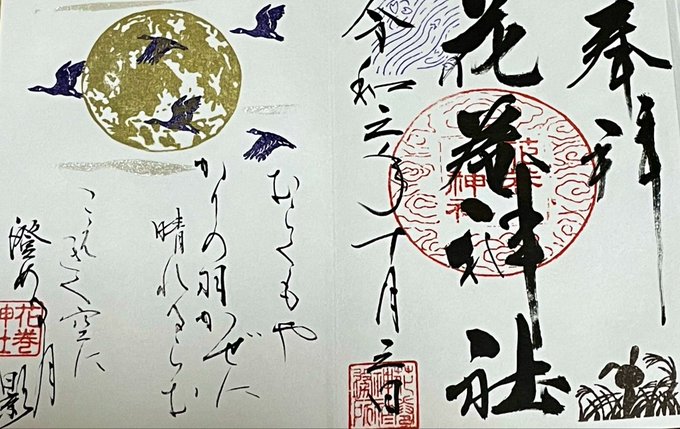 奉拝
花巻神社
花巻神社
令和六年十月三日
むらくもや
かりの羽かぜに
晴れぬらむ
こゑきく空に
澄める月影
花巻神社